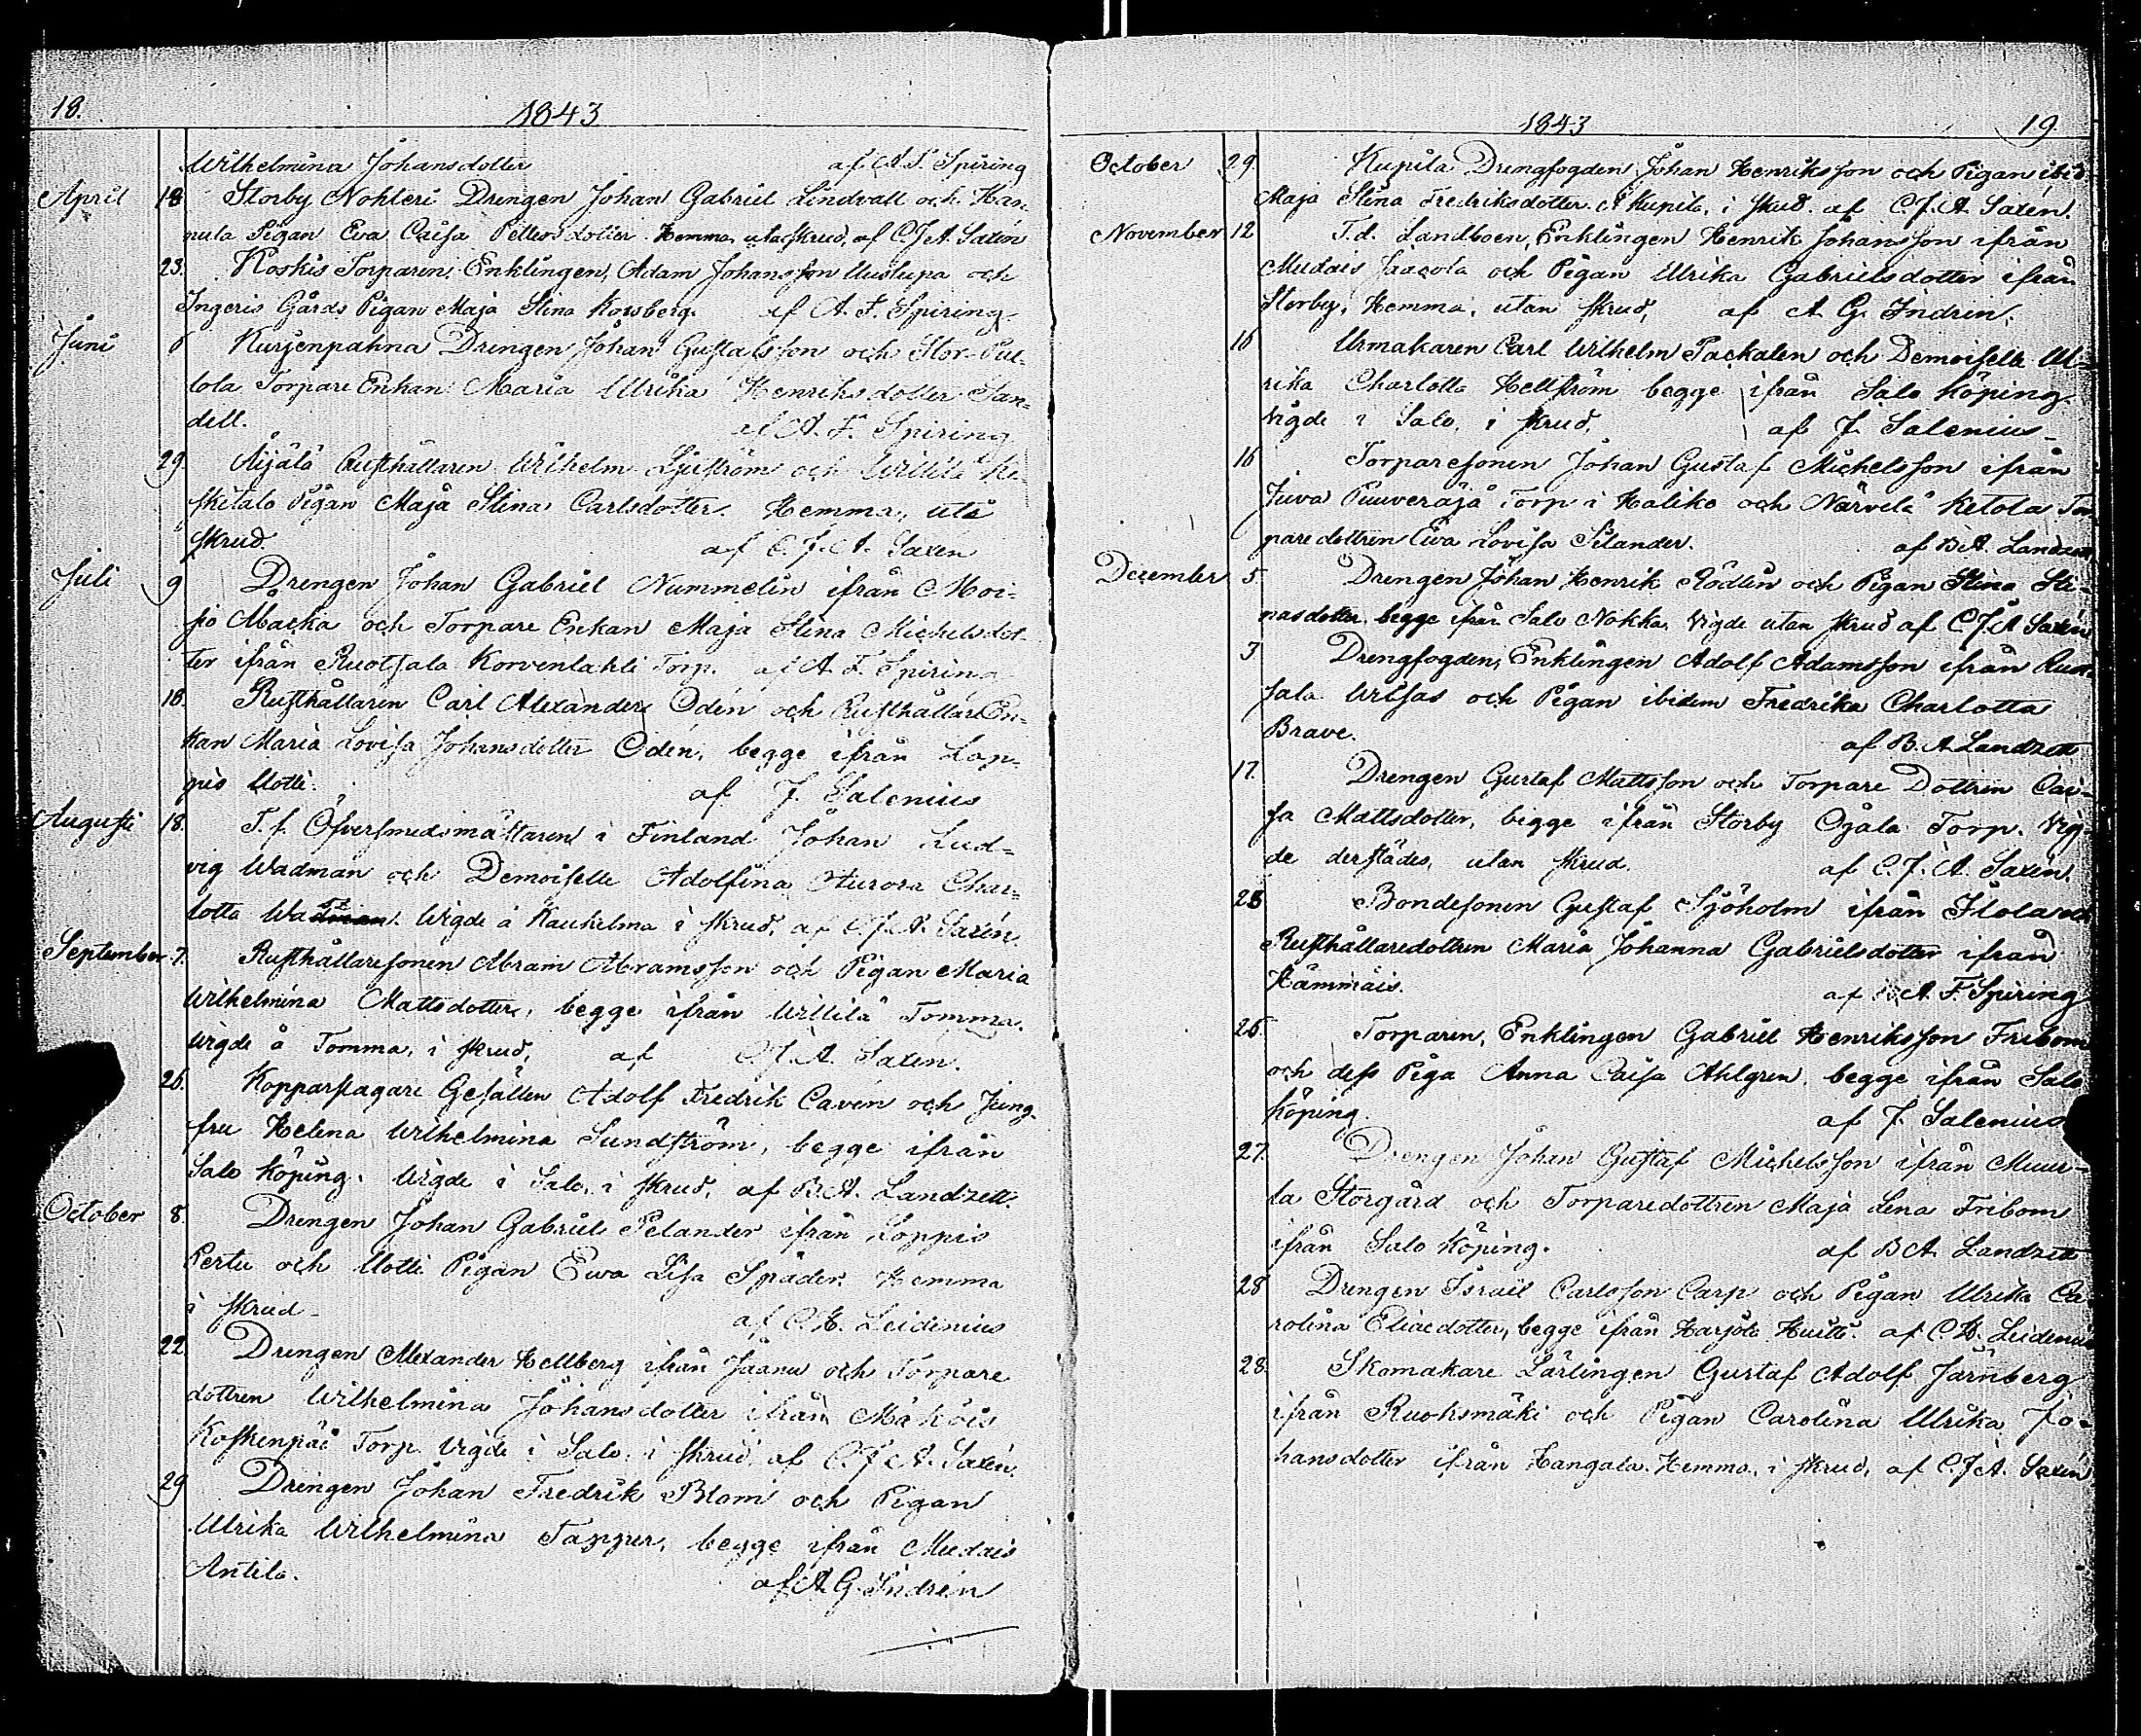 18.
1843
Wilhelmina Johansdotter af A. F. Spiring
April 18 Storby Nohteri Drengen Johan Gabriel Lindvall och Han-
nula Pigan Eva Caisa Pettersdotter. Hemma, utan skrud, af C. J. A. Saxén
23. Koskis Torparen, Enklingen, Adam Johansson Uustupa och
Ingeris Gårds Pigan Maja Stina Korsberg. af A. F. Spiring
Juni 6 Kurjenpahna Drengen Johan Gustafsson och Stor-Pul-
lola Torpare Enkan Maria Ulrika Henriksdotter San-
dell. af A. F. Spiring
29. Äijälä Rusthållaren Wilhelm Ljuström och Wittilä Ke-
sketalo Pigan Maja Stina Carlsdotter. Hemma, uti
skrud. af C. J. A. Saxen
Juli 9 Drengen Johan Gabriel Nummelin ifrån Moi-
sio Macka och Torpare Enkan Maja Stina Michelsdot-
ter ifrån Ruotsala Korvenlahti Torp. af A. F. Spiring
18. Rusthållaren Carl Alexander Odén och Rusthållare En-
kan Maria Lovisa Johansdotter Oden, begge ifrån Lop-
pis Uotti. af J. Salenius
Augusti 18. T. f. Öfversmedsmästaren i Finland Johan Lud-
vig Wadman och Demoiselle Adolfina Aurora Char-
lotta Wadman. Wigde å Kaukelma i skrud, af C. J. A. Saxén.
September 7. Rusthållaresonen Abram Abramsson och Pigan Maria
Wilhelmina Mattsdotter, begge ifrån Wittilä Tomma.
Wigde å Tomma, i skrud, af C. J. A. Saxen.
26. Kopparslagare Gesällen Adolf Fredrik Cavén och Jung-
fru Helena Wilhelmina Sundström, begge ifrån
Salo Köping. Wigde i Salo, i skrud, af B. A. Landzett.
October 8. Drengen Johan Gabriel Pelander ifrån Loppis
Pertu och Uotti Pigan Ewa Lisa Späder. Hemma
i skrud af C. H. Leidenius
22. Drengen Alexander Hellberg ifrån Jäänu och Torpare
dottren Wilhelmina Johansdotter ifrån Märköis
Koskenpää Torp. Vigde i Salo i skrud af C. J. A. Saxén.
29 Drengen Johan Fredrik Blom och Pigan
Ulrika Wilhelmina Tapper, begge ifrån Mudais
Antila. af A. G. Indrén
1843
19.
October 29. Kupila Drengfogden Johan Henriksson och Pigan ibid
Maja Stina Fredriksdotter. A Kupila, i skrud. af C. J. A. Saxén.
November 12 T. d. Landboen, Enklingen Henrik Johansson ifrån
Mudais Jaacola och Pigan Ulrika Gabrielsdotter ifrån
Storby, Hemma, utan skrud, af A. G. Indrin.
16 Urmakaren Carl Wilhelm Tackalen och Demoiselle Ul-
rika Charlotta Hellström begge ifrån Salo Köping.
Vigde i Salo, i skrud, af J. Salenius
16 Torparesonen Johan Gustaf Michelsson ifrån
Juva Puuveräjä Torp i Haliko och Närvelä Ketola Tor-
paredottren Eva Lovisa Silander. af B. A. Landzett
December 5. Drengen Johan Henrik Rödlin och Pigan Stina Sti-
nasdotter begge ifrån Salo Nokka. Vigde utan skrud af C. J. A. Saxén
3 Drengfogden, Enklingen Adolf Adamsson ifrån Ruot-
sala Uitsas och Pigan ibidem Fredrika Charlotta
Brave. af B. A. Landzett
17. Drengen Gustaf Mattsson och Torpare Dottren Cai-
sa Mattsdotter, begge ifrån Storby Ojala Torp. Vig-
de derstädes, utan skrud. af C. J. A. Saxén.
28 Bondesonen Gustaf Sjöholm ifrån Isola och
Rusthållaredottren Maria Johanna Gabrielsdotter ifrån
Hämmäis. af A. F. Spiring
26. Torparen, Enklingen Gabriel Henriksson Fribom
och dess Piga Anna Caisa Ahlgren, begge ifrån Salo
Köping. af J. Salenius
27. Drengen Johan Gustaf Michelsson ifrån Muur-
la Storgård och Torparedottren Maja Lena Fribom
ifrån Salo Köping. af B A. Landzett
28 Drengen Israel Carlsson Carp och Pigan Ulrika Ca-
rolina Eliædotter, begge ifrån Harjola Huitti. af C. H. Leidenius
28. Skomakare Lärlingen Gustaf Adolf Järnberg
ifrån Ruoksmäki och Pigan Carolina Ulrika Jo-
hansdotter ifrån Hangala. Hemma, i skrud, af C. J. A. Saxén